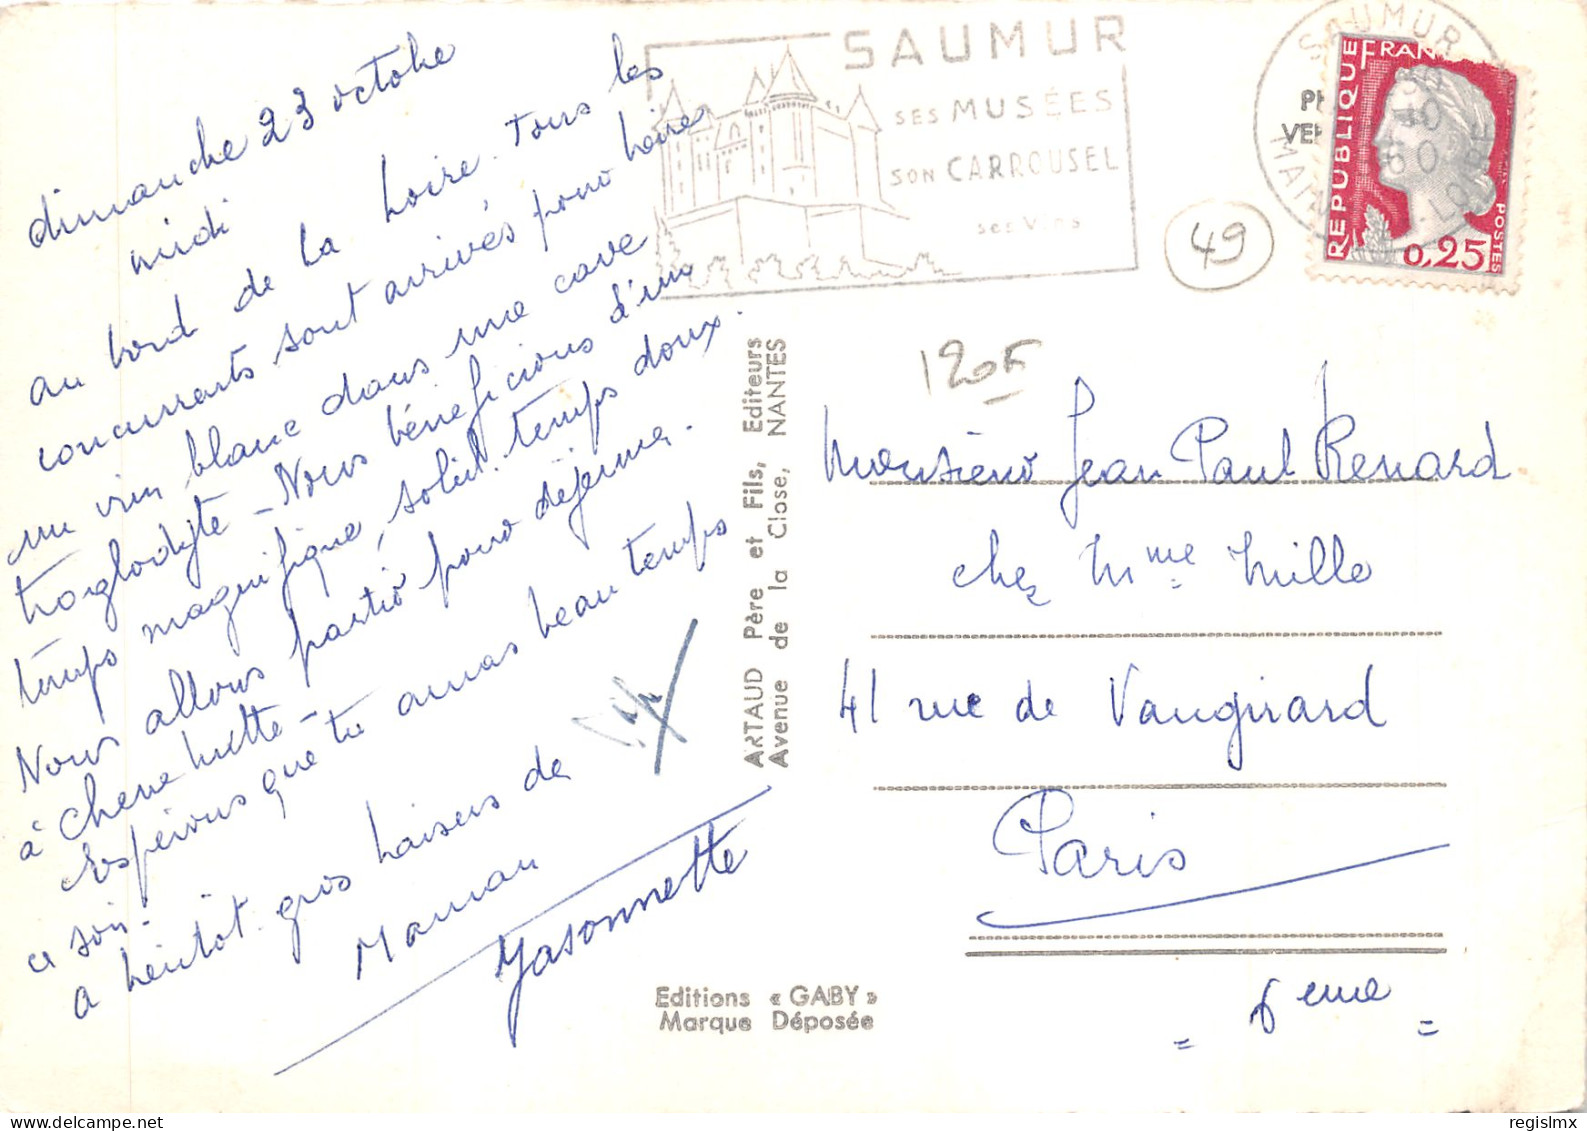 dimanche 23 octobre
midi
au bord de la Loire. Tous les
concurrents sont arrivés pour boire
un vin blanc dans une cave
troglodyte - Nous bénéficions d'un
temps magnifique, soleil. temps doux.
Nous allons partir pour déjeuner.
à Chene hutte -
Espérons que tu auras beau temps
ce soir.
A bientôt. gros baisers de
Maman
Yasonnette
SAUMUR
SES MUSÉES
SON CARROUSEL
SES VINS
SAUMUR
10
60
LOIRE
REPUBLIQUE FRAN
POSTES
0,25
49
120F
ARTAUD Père et Fils, Editeurs
Avenue de la Close, NANTES
Monsieur Jean Paul Renard
chez Mme Mille
41 rue de Vaugirard
Paris
6eme
Editions « GABY »
Marque Déposée
regislmx